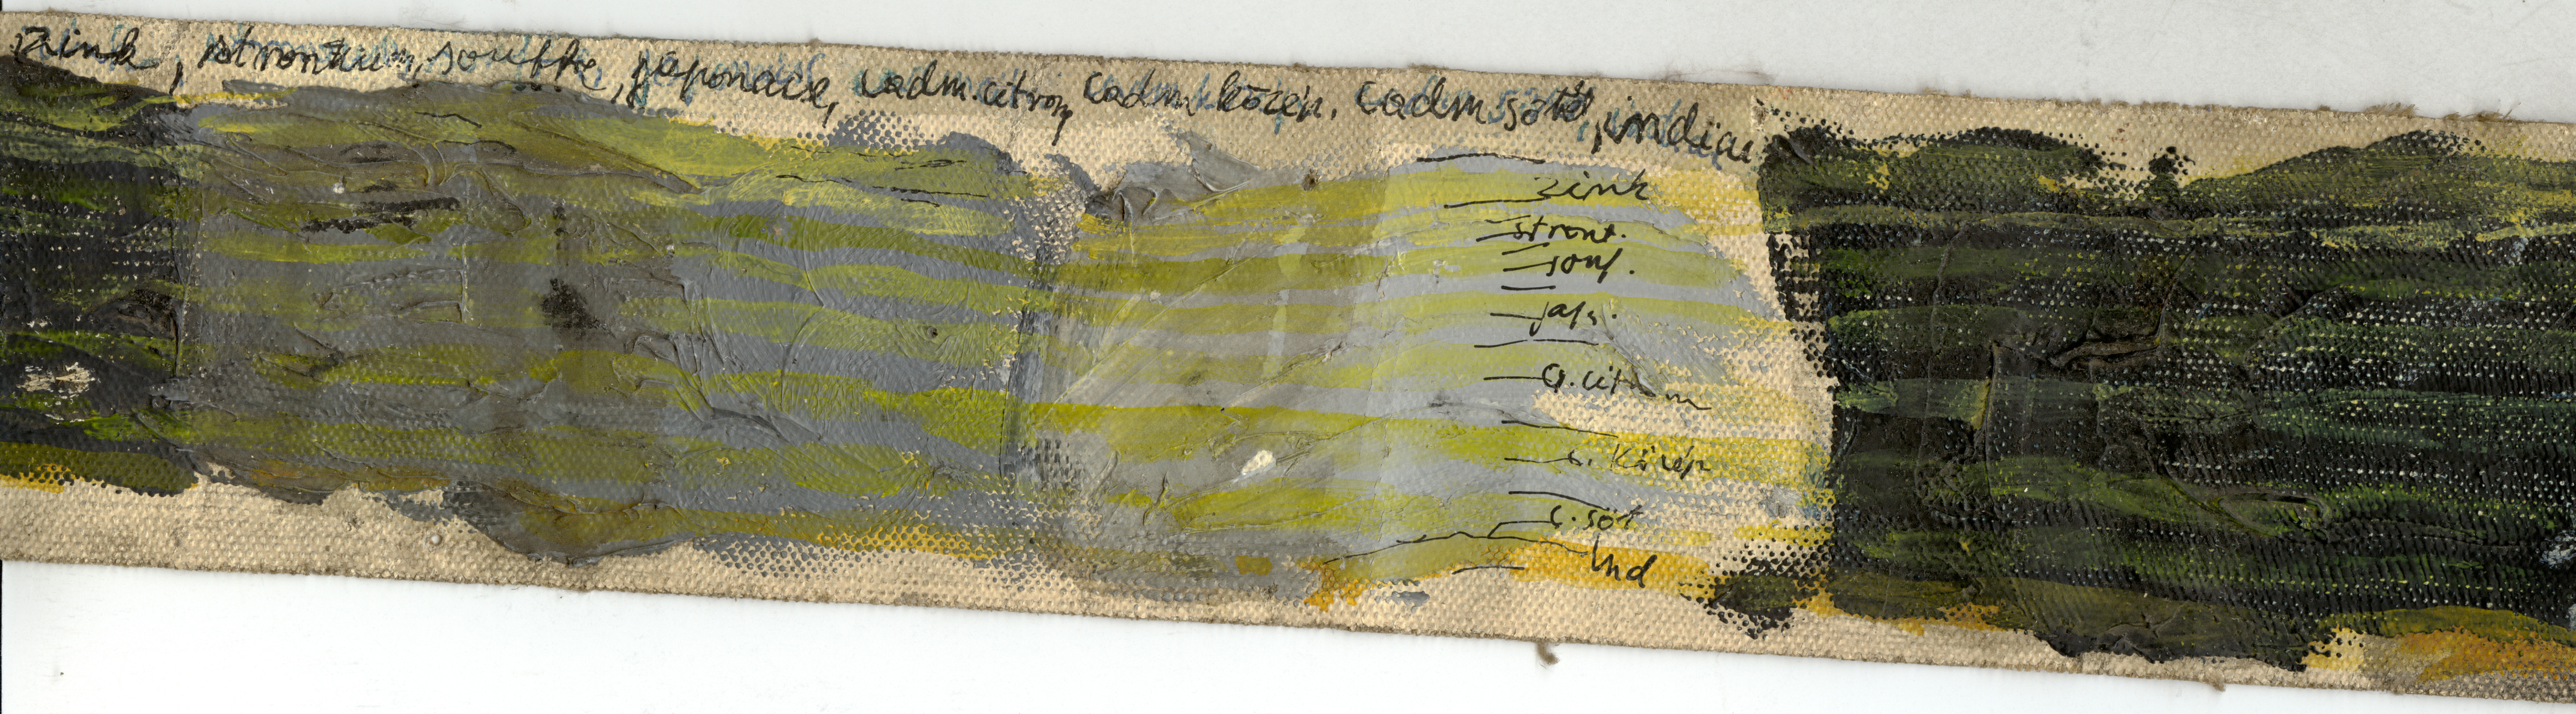 zink, strontium, souffre, japonace, cadm. citron, cadm. közép. cadm sötét, indiai
zink
stront.
souf.
jap.
c. citrom
c. közép
c. söt
Ind